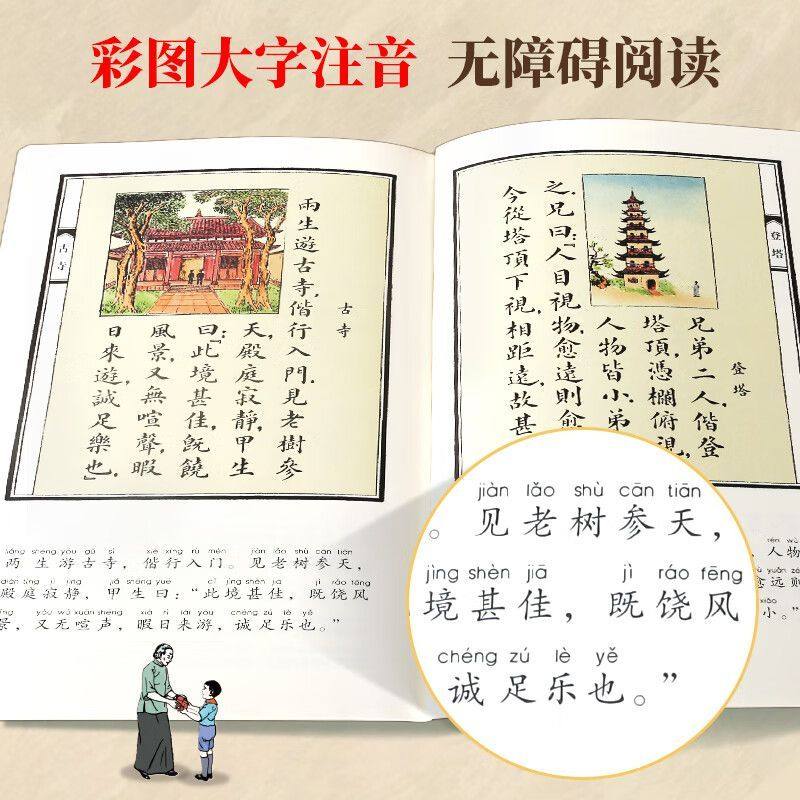 彩图大字注音 无障碍阅读
古寺
古寺
兩生遊古寺,偕行入門.見老樹參
天,殿庭寂靜,甲生
曰:「此境甚佳,既饒
風景,又無喧聲,暇
日來遊,誠足樂也」.
登塔
登塔
兄弟二人,偕登
塔頂,憑欄俯視,
人物皆小.弟
之.兄曰:「人目視物,愈遠則愈
今從塔頂下視,相距遠,故甚
liǎng shēng yóu gǔ sì xié xíng rù mén jiàn lǎo shù cān tiān
两生游古寺,偕行入门。见老树参天,
diàn tíng jì jìng jiǎ shēng yuē cǐ jìng shèn jiā jì ráo fēng
殿庭寂静,甲生曰:“此境甚佳,既饶风
jǐng yòu wú xuān shēng xiá rì lái yóu chéng zú lè yě
景,又无喧声,暇日来游,诚足乐也。”
jiàn lǎo shù cān tiān
。见老树参天,
jìng shèn jiā jì ráo fēng
境甚佳,既饶风
chéng zú lè yě
诚足乐也。”
rén wù
人物
yù yuǎn zé
愈远则
xiǎo
小。”